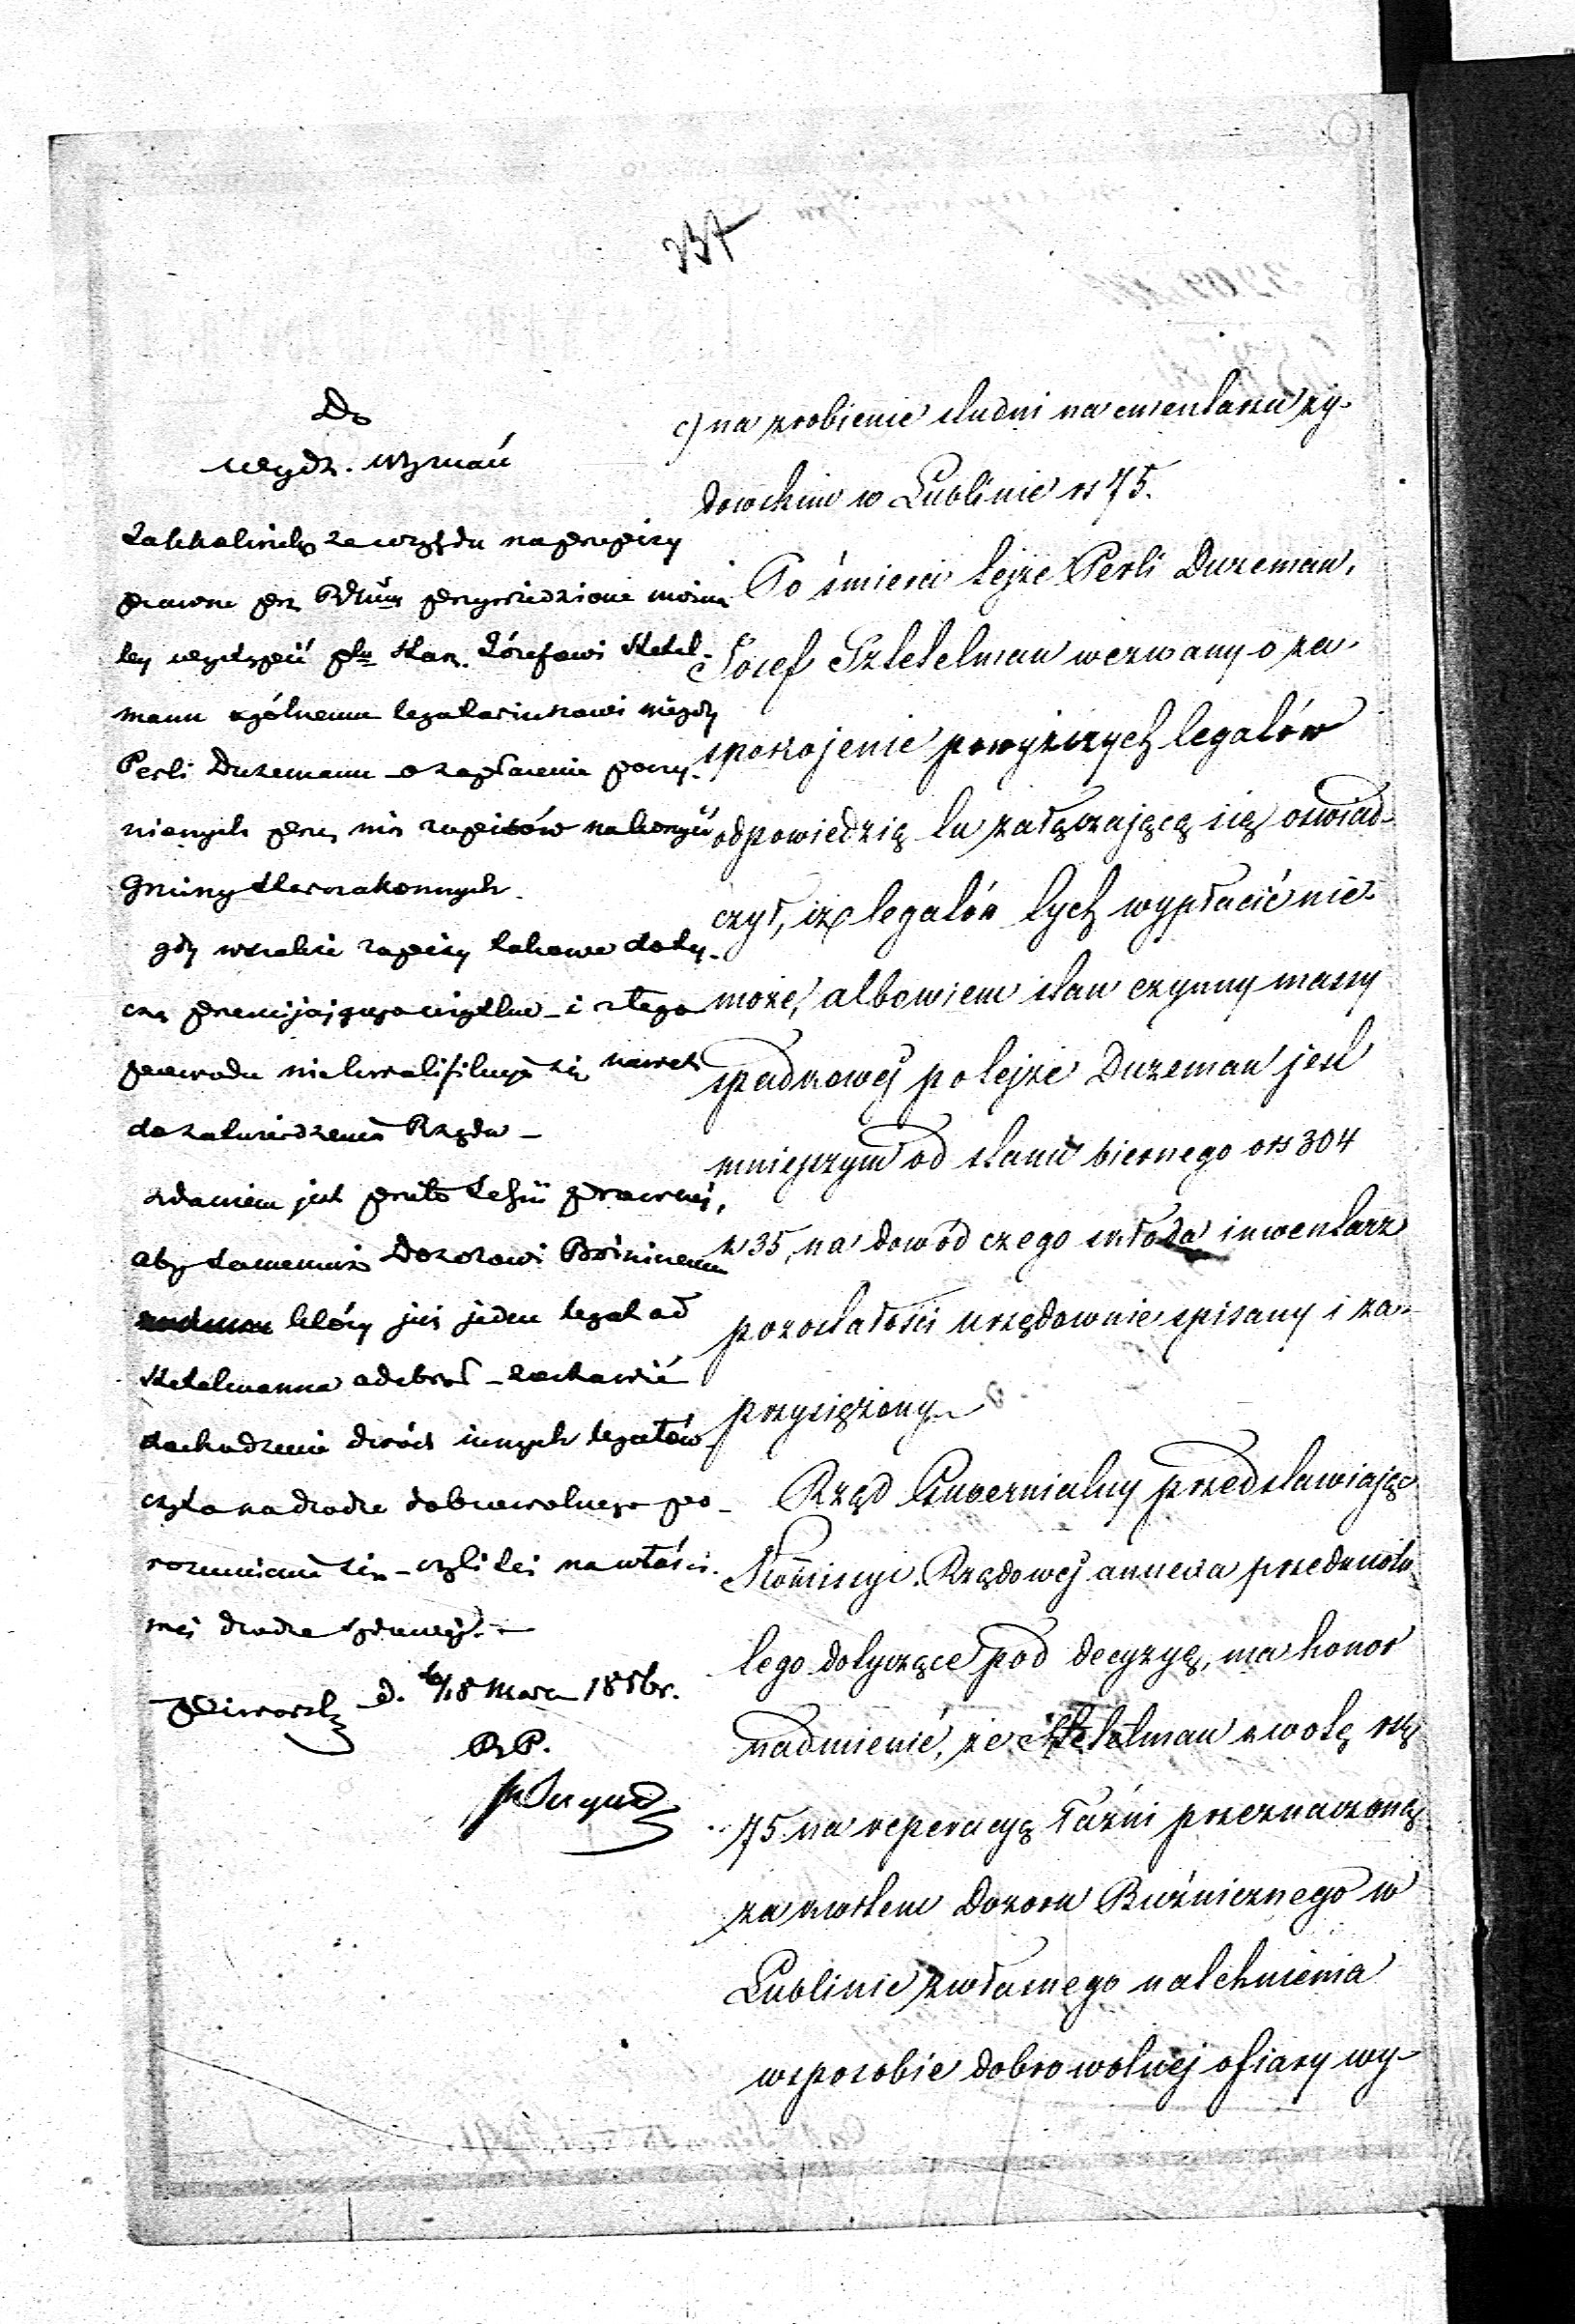 237
Do
Wydz. Wyznań
Jakkolwiek ze względu na przepisy
prawne prz. Rdium przywiedzione można
by wystąpić pko Star. Józefowi Sketel-
manu ogólnemu legataryuszowi niegdy
Perli Duzemann - o zapłacenie poczy-
nionych przez nią zapisów na korzyść
Gminy Starozakonnych.
gdy wszakże zapisy takowe doty-
czą przemijającego użytku - i z tego
powodu niekwalifikują się nawet
do zatwierdzenia Rządu -
zdaniem jest przeto Sekcji prawnej,
aby samemuż Dozorowi Bóżniczemu
który już jeden legat od
Sketelmanna odebrał - zostawić
dochodzenie dwóch innych legatów
czyto na drodze dobrowolnego po-
rozumienia się - czyli też na właści-
wej drodze sądowej. -
d. 6/18 Marca 1856 r.
RP.
c) na zrobienie studni na cmentarzu ży-
dowskim w Lublinie rs 75.
Po śmierci tejże Perli Duzeman,
Josef Sztetelman wezwany o za-
spokojenie powyższych legatów
odpowiedzią tu załączającą się oświad-
czył, iż legatów tych wypłacić nie-
może, albowiem stan czynny massy
spadkowej po tejże Duzeman jest
mniejszym od stanu biernego o rs 304
k 35, na dowód czego złożył inwentarz
pozostałości urzędownie spisany i za-
przysiężony.
Rząd Gubernialny przedstawiając
Kommissyi Rządowej annexa przedmiotu
tego dotyczące pod decyzyę, ma honor
nadmienić, że Sztetelman kwotę rsr
75 na reperacyą łaźni przeznaczoną
za wpływem Dozoru Bóżnicznego w
Lublinie z własnego natchnienia
w sposobie dobrowolnej ofiary wy-